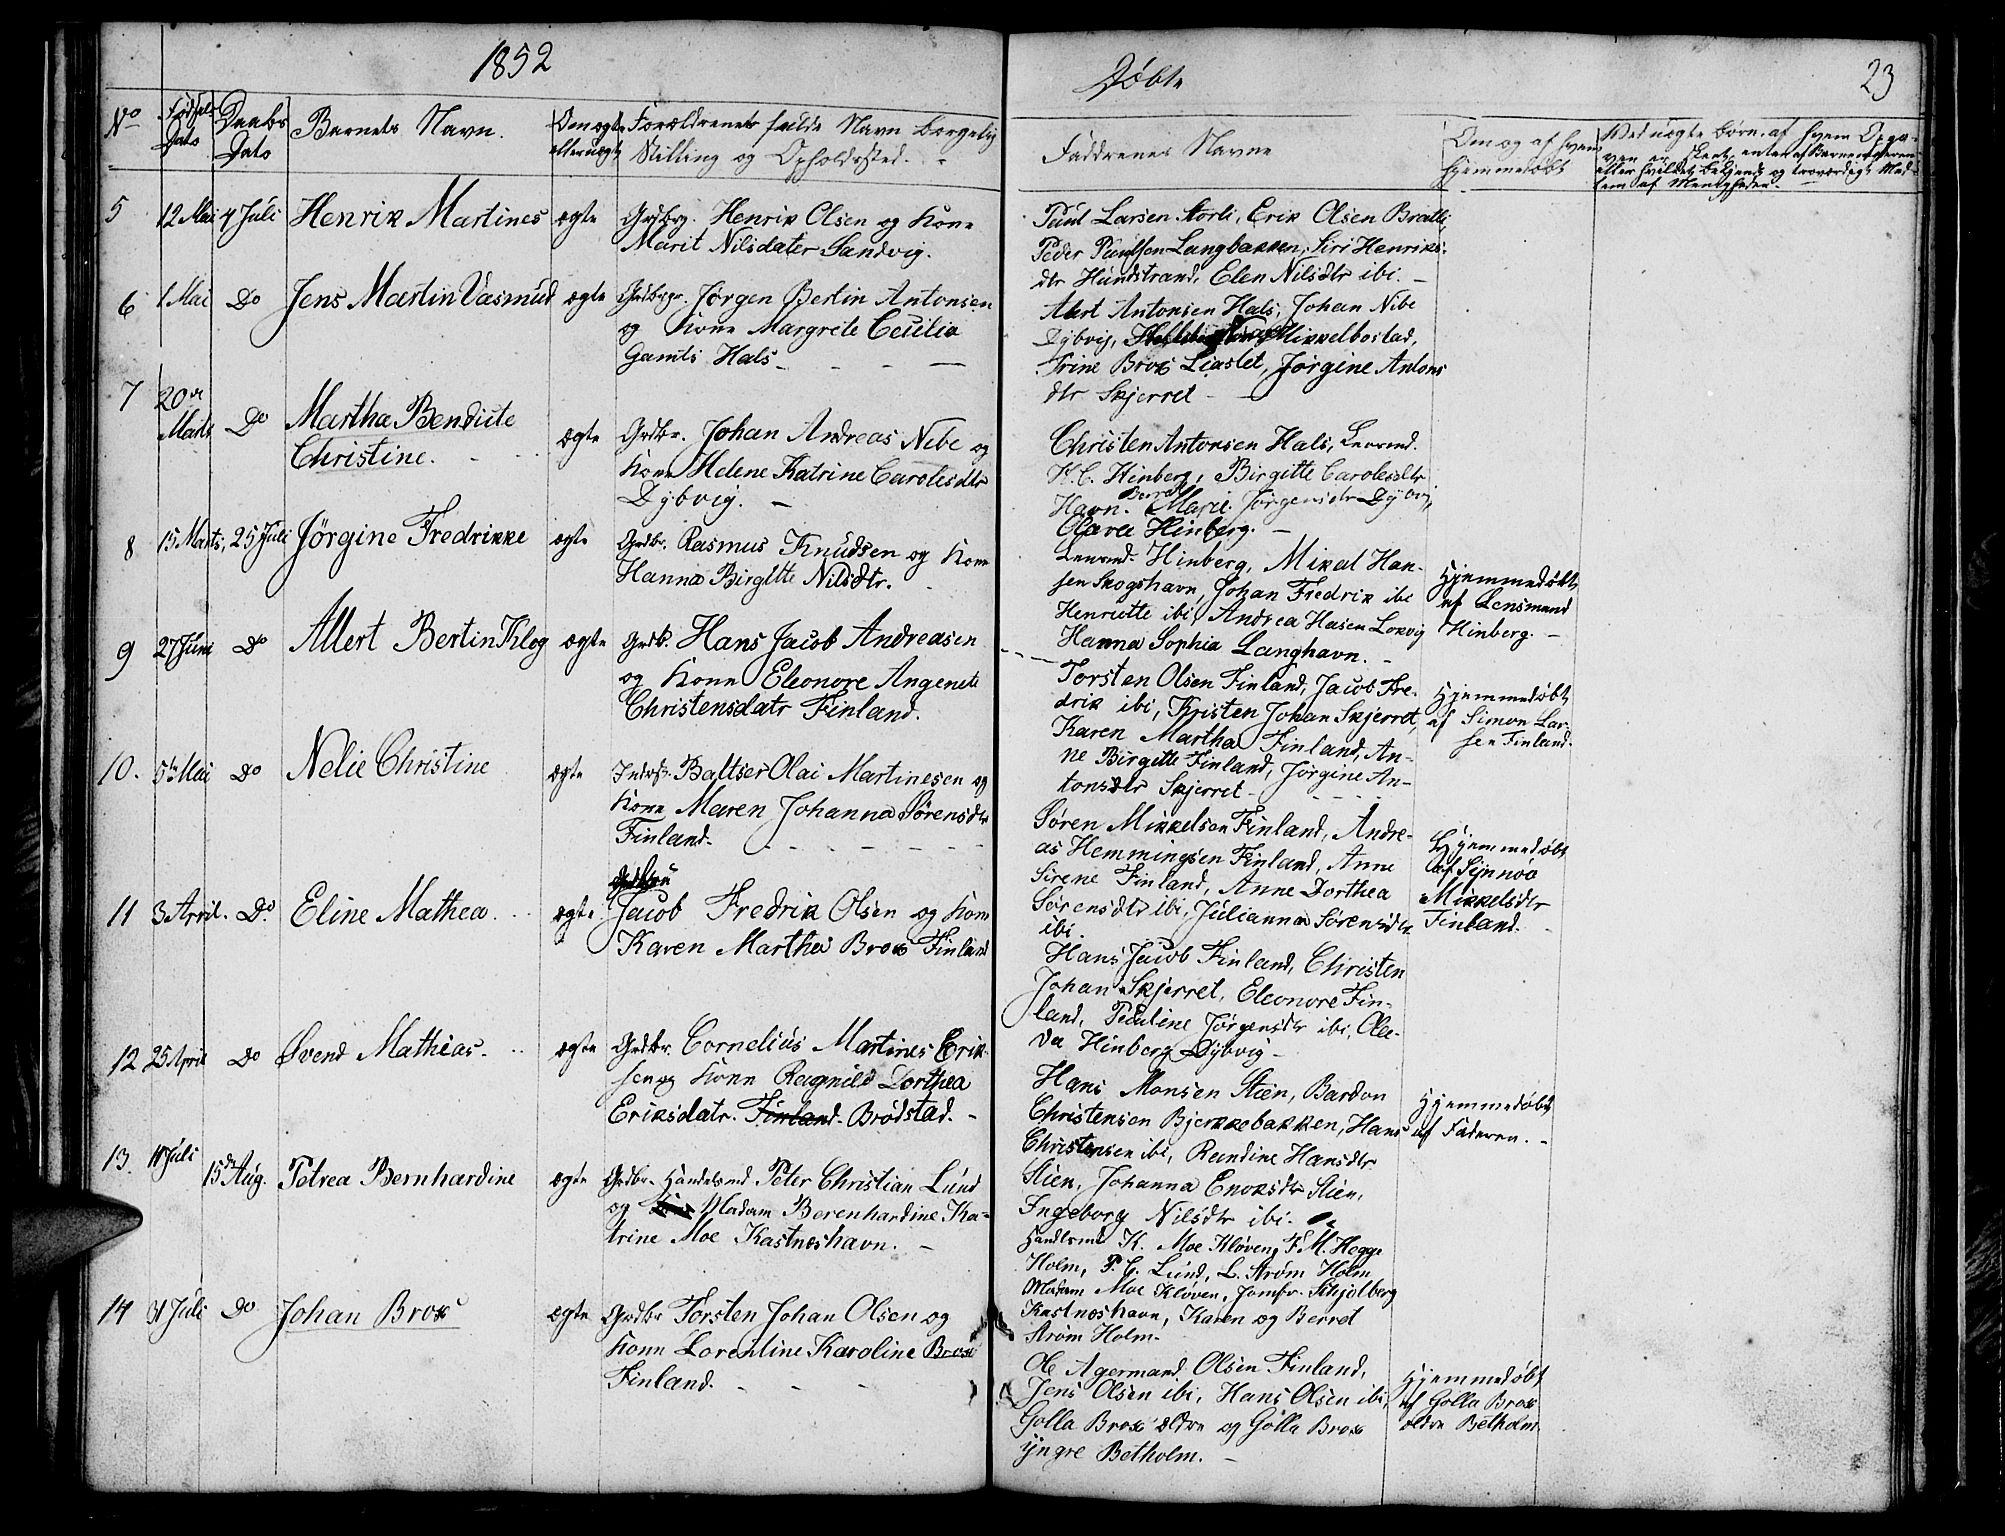 1852
Døbte
23
No
Fødsels
Dato
Daabs
Dato
Barnets Navn.
Om ægte
eller uægte
Forældrenes fulde Navn borgerlig
Stilling og Opholdssted.
Faddrenes Navne
Om og af hvem
hjemmedøbt
Ved uægte børn, af hvem Opga-
ven er skeet, enten af Barnemoderen
eller hvilket bekjendt og troværdigt Med-
lem af Menigheden.
5
12 Mai
4 Juli
Henrik Martines
ægte
Grdbrg. Henrik Olsen og Kone
Marit Nilsdater Sandvig.
Paul Larsen Storli, Erik Olsen Bratli
Peder Paulsen Langbakken, Siri Henriks-
dtr Hundstrand, Elen Nilsdtr ibi. -
6
1 Mai
Do
Jens Martin Vasmud
ægte
Grdbrgr. Jørgen Bertin Antonsen
og Kone Margrete Cecilia
Gamts Hals
Alert Antonsen Hals, Johan Nibe
Dybvig, Mikkelbostad,
Trine Brox Liaslet, Jørgine Antons
dtr Skjerret -
7
20de
Marts
Do
Martha Bendicte
Christine.
ægte
Grdbr. Johan Andreas Nibe og
Kone Helene Katrine Carolesdtr
Dybvig. -
Christen Antonsen Hals, Lensmd.
H. C. Hinberg, Birgitte Carolesdtr
Havn. Berret Marie Jørgensdtr Dybvig,
Olava Hinberg. -
8
15 Marts,
25 Juli
Jørgine Fredrikke
ægte
Grdbr. Rasmus Knudsen og Kone
Hanna Birgitte Nilsdtr.
Lensmd. Hinberg, Mikal Han-
sen Skogshavn, Johan Fredrik ibi
Henriette ibi, Andrea Hasen Lorvig
Hanna Sophia Langhavn. -
Hjemmedøbt
af Lensmand
Hinberg. -
9
27 Juni
Do
Allert Bertin Klog
ægte
Grdb. Hans Jacob Andreasen
og Kone Eleonore Angenete
Christensdatr Finland.
Torsten Olsen Finland, Jacob Fre-
drik ibi, Kristen Johan Skjerret,
Karen Martha Finland, An-
ne Birgitte Finland, Jørgine An-
tonsdtr Skjerret -
Hjemmedøbt
af Simon Lar-
sen Finland.
10.
5te Mai
Do
Nelie Christine
ægte
Inds. Baltser Olai Martinesen og
Kone Maren Johanna Sørensdtr
Finland.
Søren Mikkelsen Finland, Andre-
as Hemmingsen Finland, Anne
Sirene Finland, Anne Dorthea
Sørensdtr ibi, Julianna Sørensdtr
ibi.
Hjemmedøbt
af Synnøv
Mikkelsdtr
Finland.
11
3 April.
Do
Eline Mathea.
ægte
Jacob Fredrik Olsen og Kone
Karen Martha Brox Finland
Hans Jacob Finland, Christen
Johan Skjerret, Eleonore Fin-
land, Pauline Jørgensdtr ibi, Ole-
va Hinberg Dybvig -
12
25 April
Do
Svend Mathias.
ægte
Grdbr. Cornelius Martines Erik-
sen og Kone Ragnild Dorthea
Eriksdatr. Finland. Brødstad. -
Hans Monsen Stien, Bardon
Christensen Bjerkebakken, Hans
Christensen ibi, Randine Hansdtr
Stien, Johanna Enoksdtr Stien,
Ingeborg Nilsdtr ibi.
Hjemmedøbt
af Faderen. -
13.
11 Juli
15de Aug.
Petrea Bernhardine
ægte
Grdbr. Handelsmd Peter Christian Lund
og Kone Madam Berenhardine Ka-
trine Moe Kastneshavn. -
Handlsmd K. Moe Kløven, F. M. Hegge
Holm, P. C. Lund, L. Strøm Holm
Madam Moe Kløven, Jomfr. Schjølberg
Kastneshavn, Karen og Berret
Strøm Holm.
14
31 Juli
Do
Johan Brox
ægte
Grdbr Torsten Johan Olsen og
Kone Lorentine Karoline Brox
Finland.
Ole Agermand Olsen Finland,
Jens Olsen ibi, Hans Olsen ibi,
Golla Brox ældre og Golla Brox
yngre Betholm. -
Hjemmedøbt
af Golla Brox
ældre Betholm.